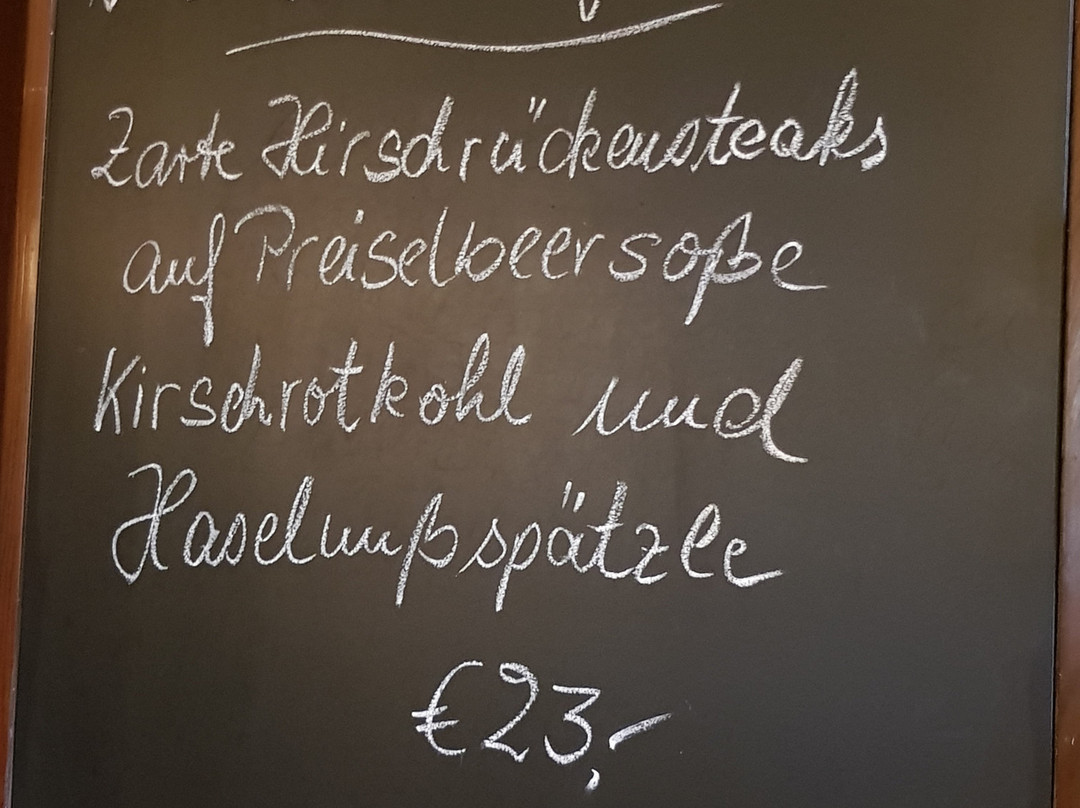 Zarte Hirschrückensteaks
auf Preiselbeersoße
Kirschrotkohl und
Haselnußspätzle
€23,-